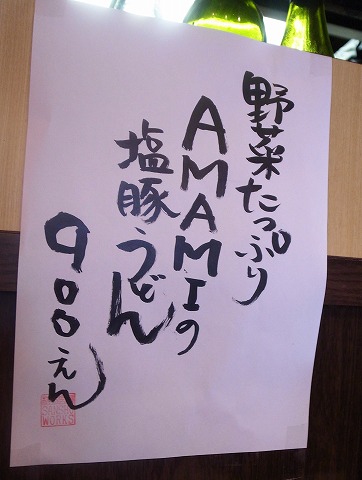 野菜たっぷり
AMAMIの
塩豚うどん
900えん
WORKS